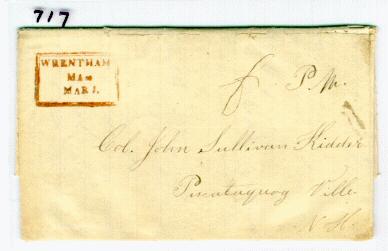 717
WRENTHAM
MAs
MAR 1.
P.M.
Col. John Sullivan Kidder
Piscataquog Ville
N H.